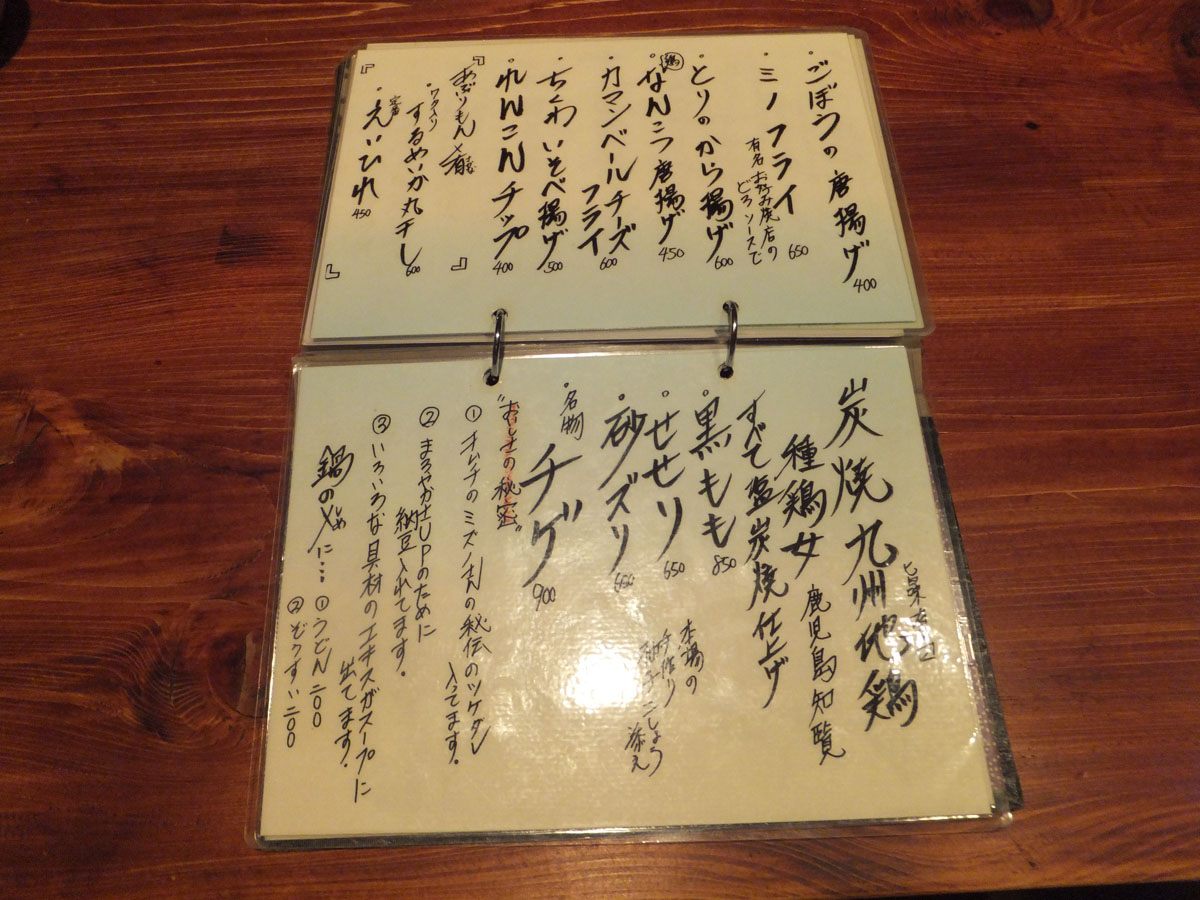 ・ごぼうの唐揚げ 400
・ミノフライ 650
有名お好み焼店の
どろソースで
・とりのから揚げ 600
・鶏なんこつ唐揚げ 450
・カマンベールチーズ
フライ 600
・ちくわいそべ揚げ 500
・れんこんチップ 400
『あぶりもん
・ワタ入り
するめいか丸干し 600
・定番
えいひれ 450
炭焼九州地鶏
種鶏女 鹿児島知覧
すべて塩炭焼仕上げ
・黒もも 850
・せせり 650
・砂ズリ 650
本場の
手作り
こしょう
添え
・名物 チゲ 900
"むし士の秘密"
① オムチのミズノさんの秘伝のツケダレ
入ってます。
② まろやかさUPのために
納豆入れてます。
③ いろいろな具材のエキスがスープに
出てます。
鍋の〆に…
しめ
①うどん 二〇〇
②ぞうすい 二〇〇